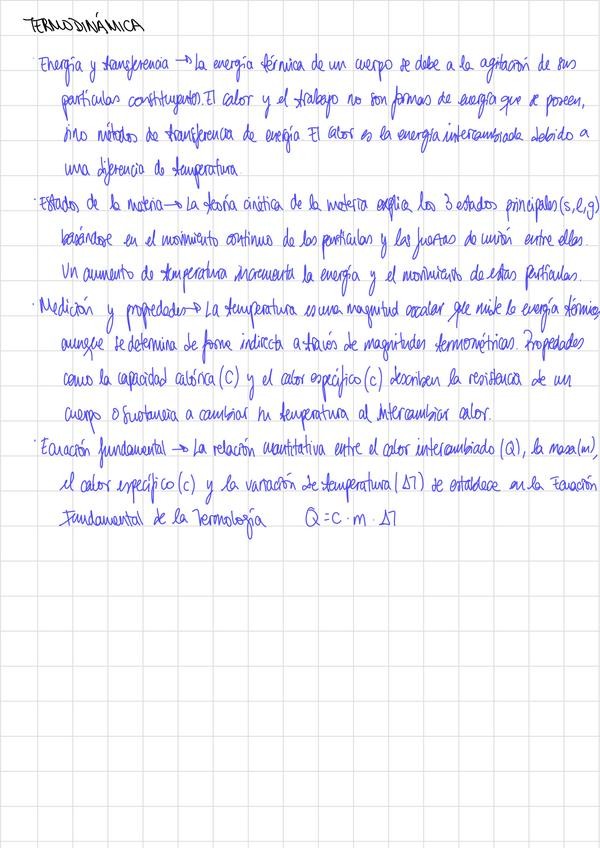 TERMODINÁMICA
· Energía y transferencia → La energía térmica de un cuerpo se debe a la agitación de sus
partículas constituyentes. El calor y el trabajo no son formas de energía que se poseen,
sino métodos de transferencia de energía El calor es la energía intercambiada debido a
una diferencia de temperatura.
· Estados de la materia → La teoría cinética de la materia explica los 3 estados principales (s, l, g)
basándose en el movimiento continuo de las partículas y las fuerzas de unión entre ellas.
Un aumento de temperatura incrementa la energía y el movimiento de estas partículas.
· Medición y propiedades → La temperatura es una magnitud escalar que mide la energía térmica,
aunque se determina de forma indirecta a través de magnitudes termométricas. Propiedades
como la capacidad calórica (C) y el calor específico (c) describen la resistencia de un
cuerpo o sustancia a cambiar su temperatura al intercambiar calor.
· Ecuación fundamental → La relación cuantitativa entre el calor intercambiado (Q), la masa (m),
el calor específico (c) y la variación de temperatura (ΔT) se establece en la Ecuación
Fundamental de la Termología Q = c · m · ΔT